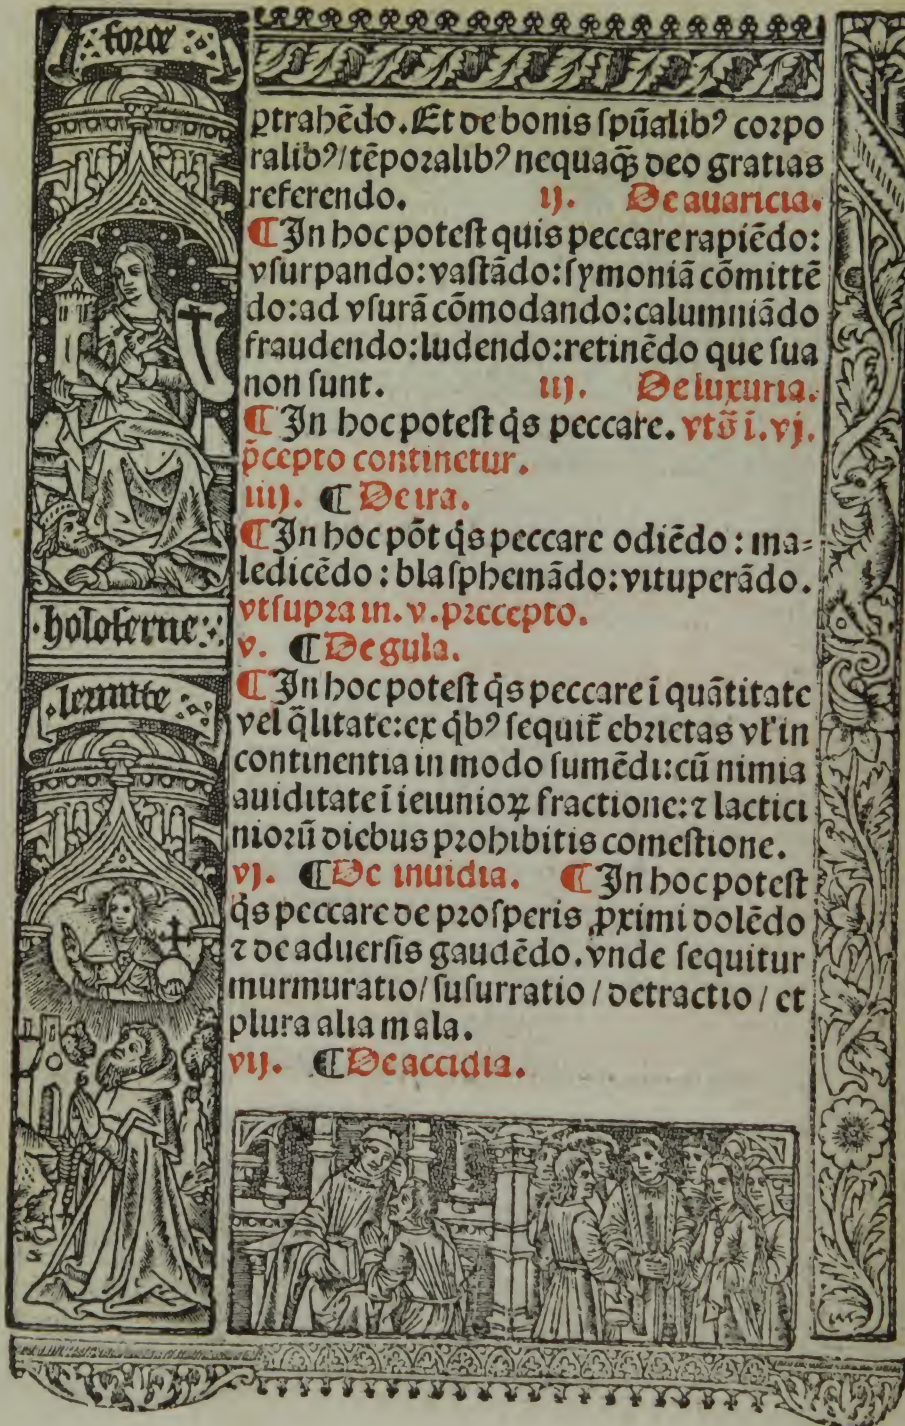 force
holoferne
lermite
ꝓtrahēdo. Et de bonis ſpūalibꝰ corpo
ralibꝰ/tēporalibꝰ nequaqꝫ deo gratias
referendo. ij. De auaricia.
¶ In hoc poteſt quis peccare rapiēdo:
vſurpando: vaſtādo: ſymoniā cōmittē
do: ad vſurā cōmodando: calumniādo
fraudendo: ludendo: retinēdo que ſua
non ſunt. iij. De luxuria.
¶ In hoc poteſt q̄s peccare. vts̄ ī. vj.
p̄cepto continetur.
iiij. ¶ De ira.
¶ In hoc pōt q̄s peccare odiēdo: ma⸗
ledicēdo: blaſphemādo: vituperādo.
vtſupra in. v. precepto.
v. ¶ De gula.
¶ In hoc poteſt q̄s peccare ī quātitate
vel q̄litate: ex q̄bꝰ ſequit̄ ebrietas vl' in
continentia in modo ſumēdi: cū nimia
auiditate ī ieiunioꝝ fractione: ⁊ lactici
niorū diebus prohibitis comeſtione.
vj. ¶ De inuidia. ¶ In hoc poteſt
q̄s peccare de proſperis ꝓximi dolēdo
⁊ de aduerſis gaudēdo. vnde ſequitur
murmuratio/ ſuſurratio / detractio / et
plura alia mala.
vij. ¶ De accidia.